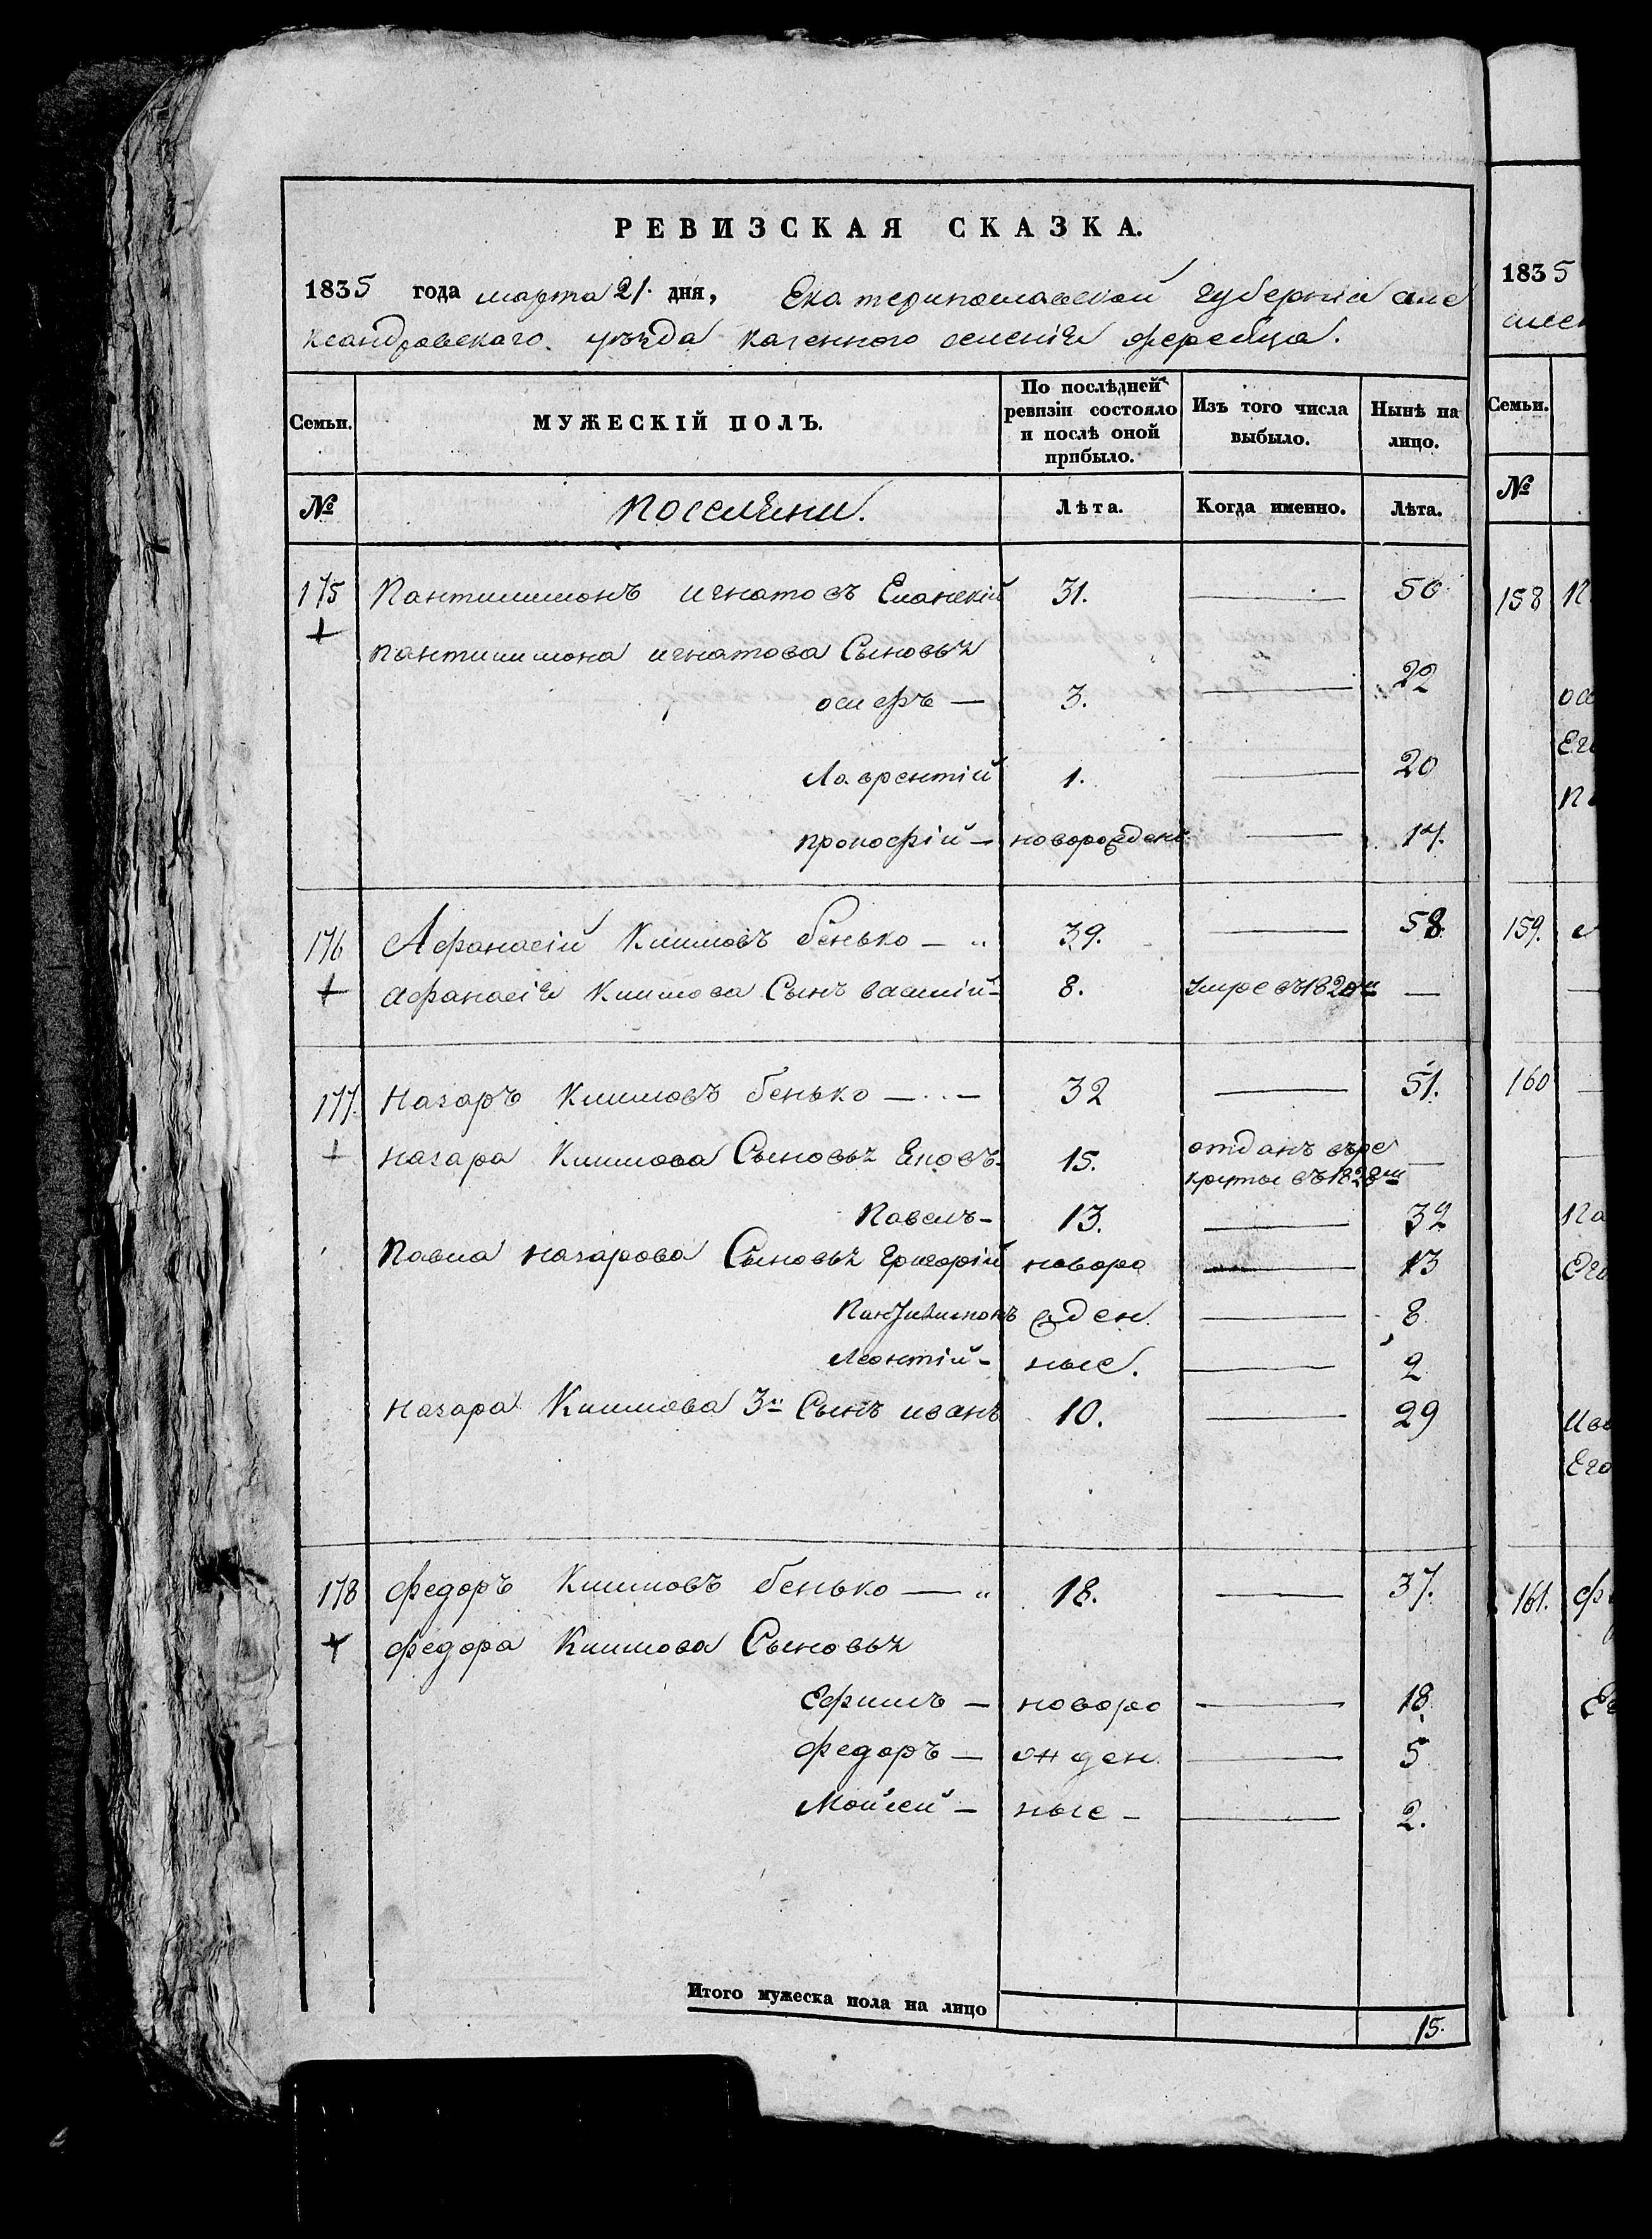 РЕВИЗСКАЯ СКАЗКА.
1835 года марта 21. дня, Екатеринославской губерніи але
ксандровскаго уѣзда казенного селенія
Семьи. МУЖЕСКІЙ ПОЛЪ. По послѣдней ревизіи состояло и послѣ оной прибыло. Изъ того числа выбыло. Нынѣ на лицо.
№ Поселяни. Лѣта. Когда именно. Лѣта.
175 Пантилимонъ игнатовъ 31. — 50
+ пантилимона игнатова Сыновья
осифъ — 3. — 22
Лаврентій 1. — 20
прокофій — новорожден — 14.
176 Афанасій Климовъ бенько — 39. — 58.
+ афанасія Климова Сынъ василій — 8. умре въ 1820м —
177. Назаръ Климовъ бенько — 32 — 51.
+ назара Климова Сыновья 15. отданъ въ ре —
круты въ 1828м
Павелъ — 13. — 32
Павла назарова Сыновья григорій новоро — 13
Пантилимонъ жден — 8
Леонтій — ные. — 2
назара Климова 3й Сынъ иванъ 10. — 29
178 федоръ Климовъ бенько — 18. — 37.
+ федора Климова Сыновья
Ефимъ — новоро — 18
федоръ — жден — 5
Мойсей — ные — — 2.
Итого мужеска пола на лицо 15.
1835
Семьи.
№
158
159.
160
161.